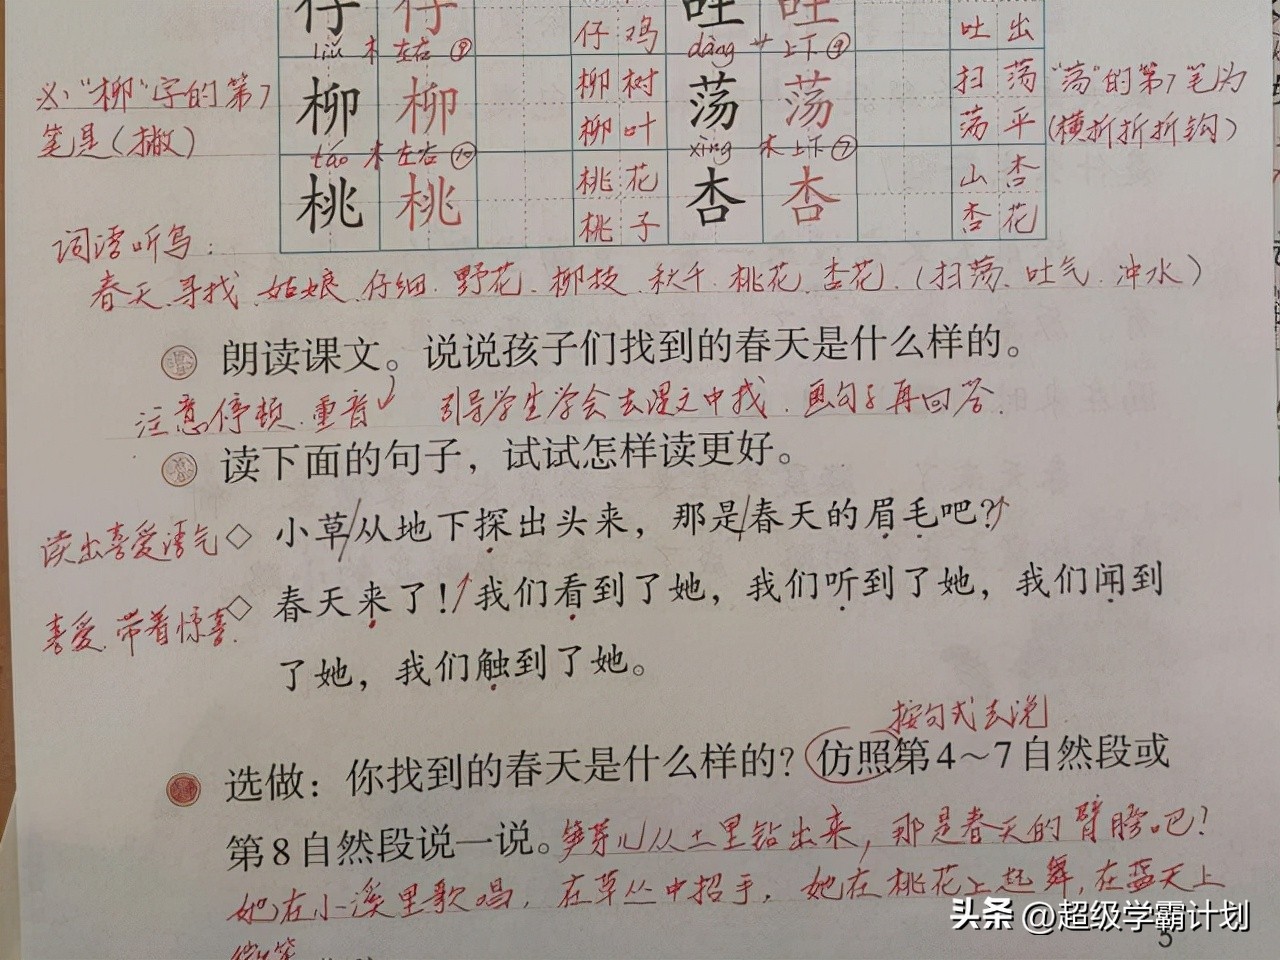 仔 仔 仔 鸡 吐 吐 吐 出
liǔ 木 左右 ⑨ dàng 艹 上下 ⑨
必:"柳"字的第7 柳 柳 柳 树 荡 荡 扫 荡 "荡"的第7笔为
笔是(撇) 柳 叶 荡 平 (横折折折钩)
táo 木 左右 ⑩ xìng 木 上下 ⑦
桃 桃 桃 花 杏 杏 山 杏
桃 子 杏 花
词语听写:
春天、寻找、姑娘、仔细、野花、柳枝、秋千、桃花、杏花、(扫荡、吐气、冲水)
朗读课文。说说孩子们找到的春天是什么样的。
注意停顿、重音 引导学生学会去课文中找、画句子再回答.
读下面的句子,试试怎样读更好。
读出喜爱语气 ◇ 小草/从地下探出头来,那是/春天的眉毛吧?
喜爱、带着惊喜. ◇ 春天来了!我们看到了她,我们听到了她,我们闻到
了她,我们触到了她。
按句式去说
选做:你找到的春天是什么样的?仿照第4~7自然段或
第8自然段说一说。笋芽儿从土里钻出来,那是春天的臂膀吧?
她在小溪里歌唱,在草丛中招手,她在桃花上起舞,在蓝天上
微笑
头条 @超级学霸计划
5